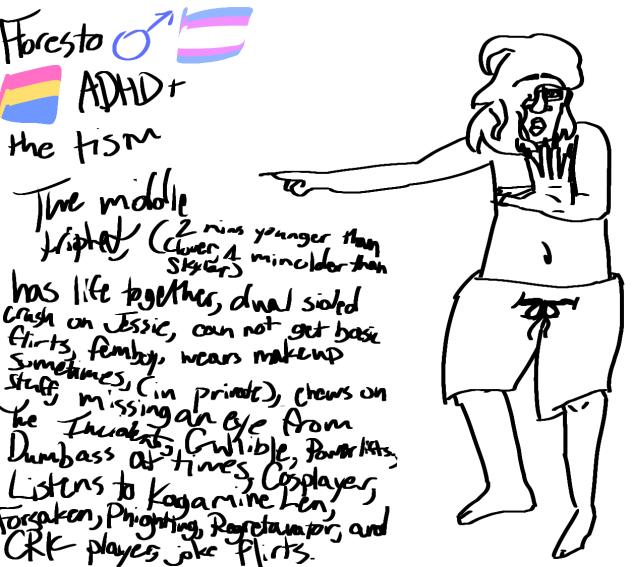 Floresto ♂
ADHD +
the tism
The middle
triplet, (2 mins younger than
Clover, 1 min older than
Skyler)
has life together, dual sided
crush on Jessie, can not get basic
flirts, femboy, wears makeup
sometimes, (in private), chews on
stuff, missing an eye from
The Incident, Gullible, Powerlifts,
Dumbass at times, Cosplayer,
Listens to Kagamine Len,
Forsaken, Phighting, Regretavator, and
CRK player, joke flirts.